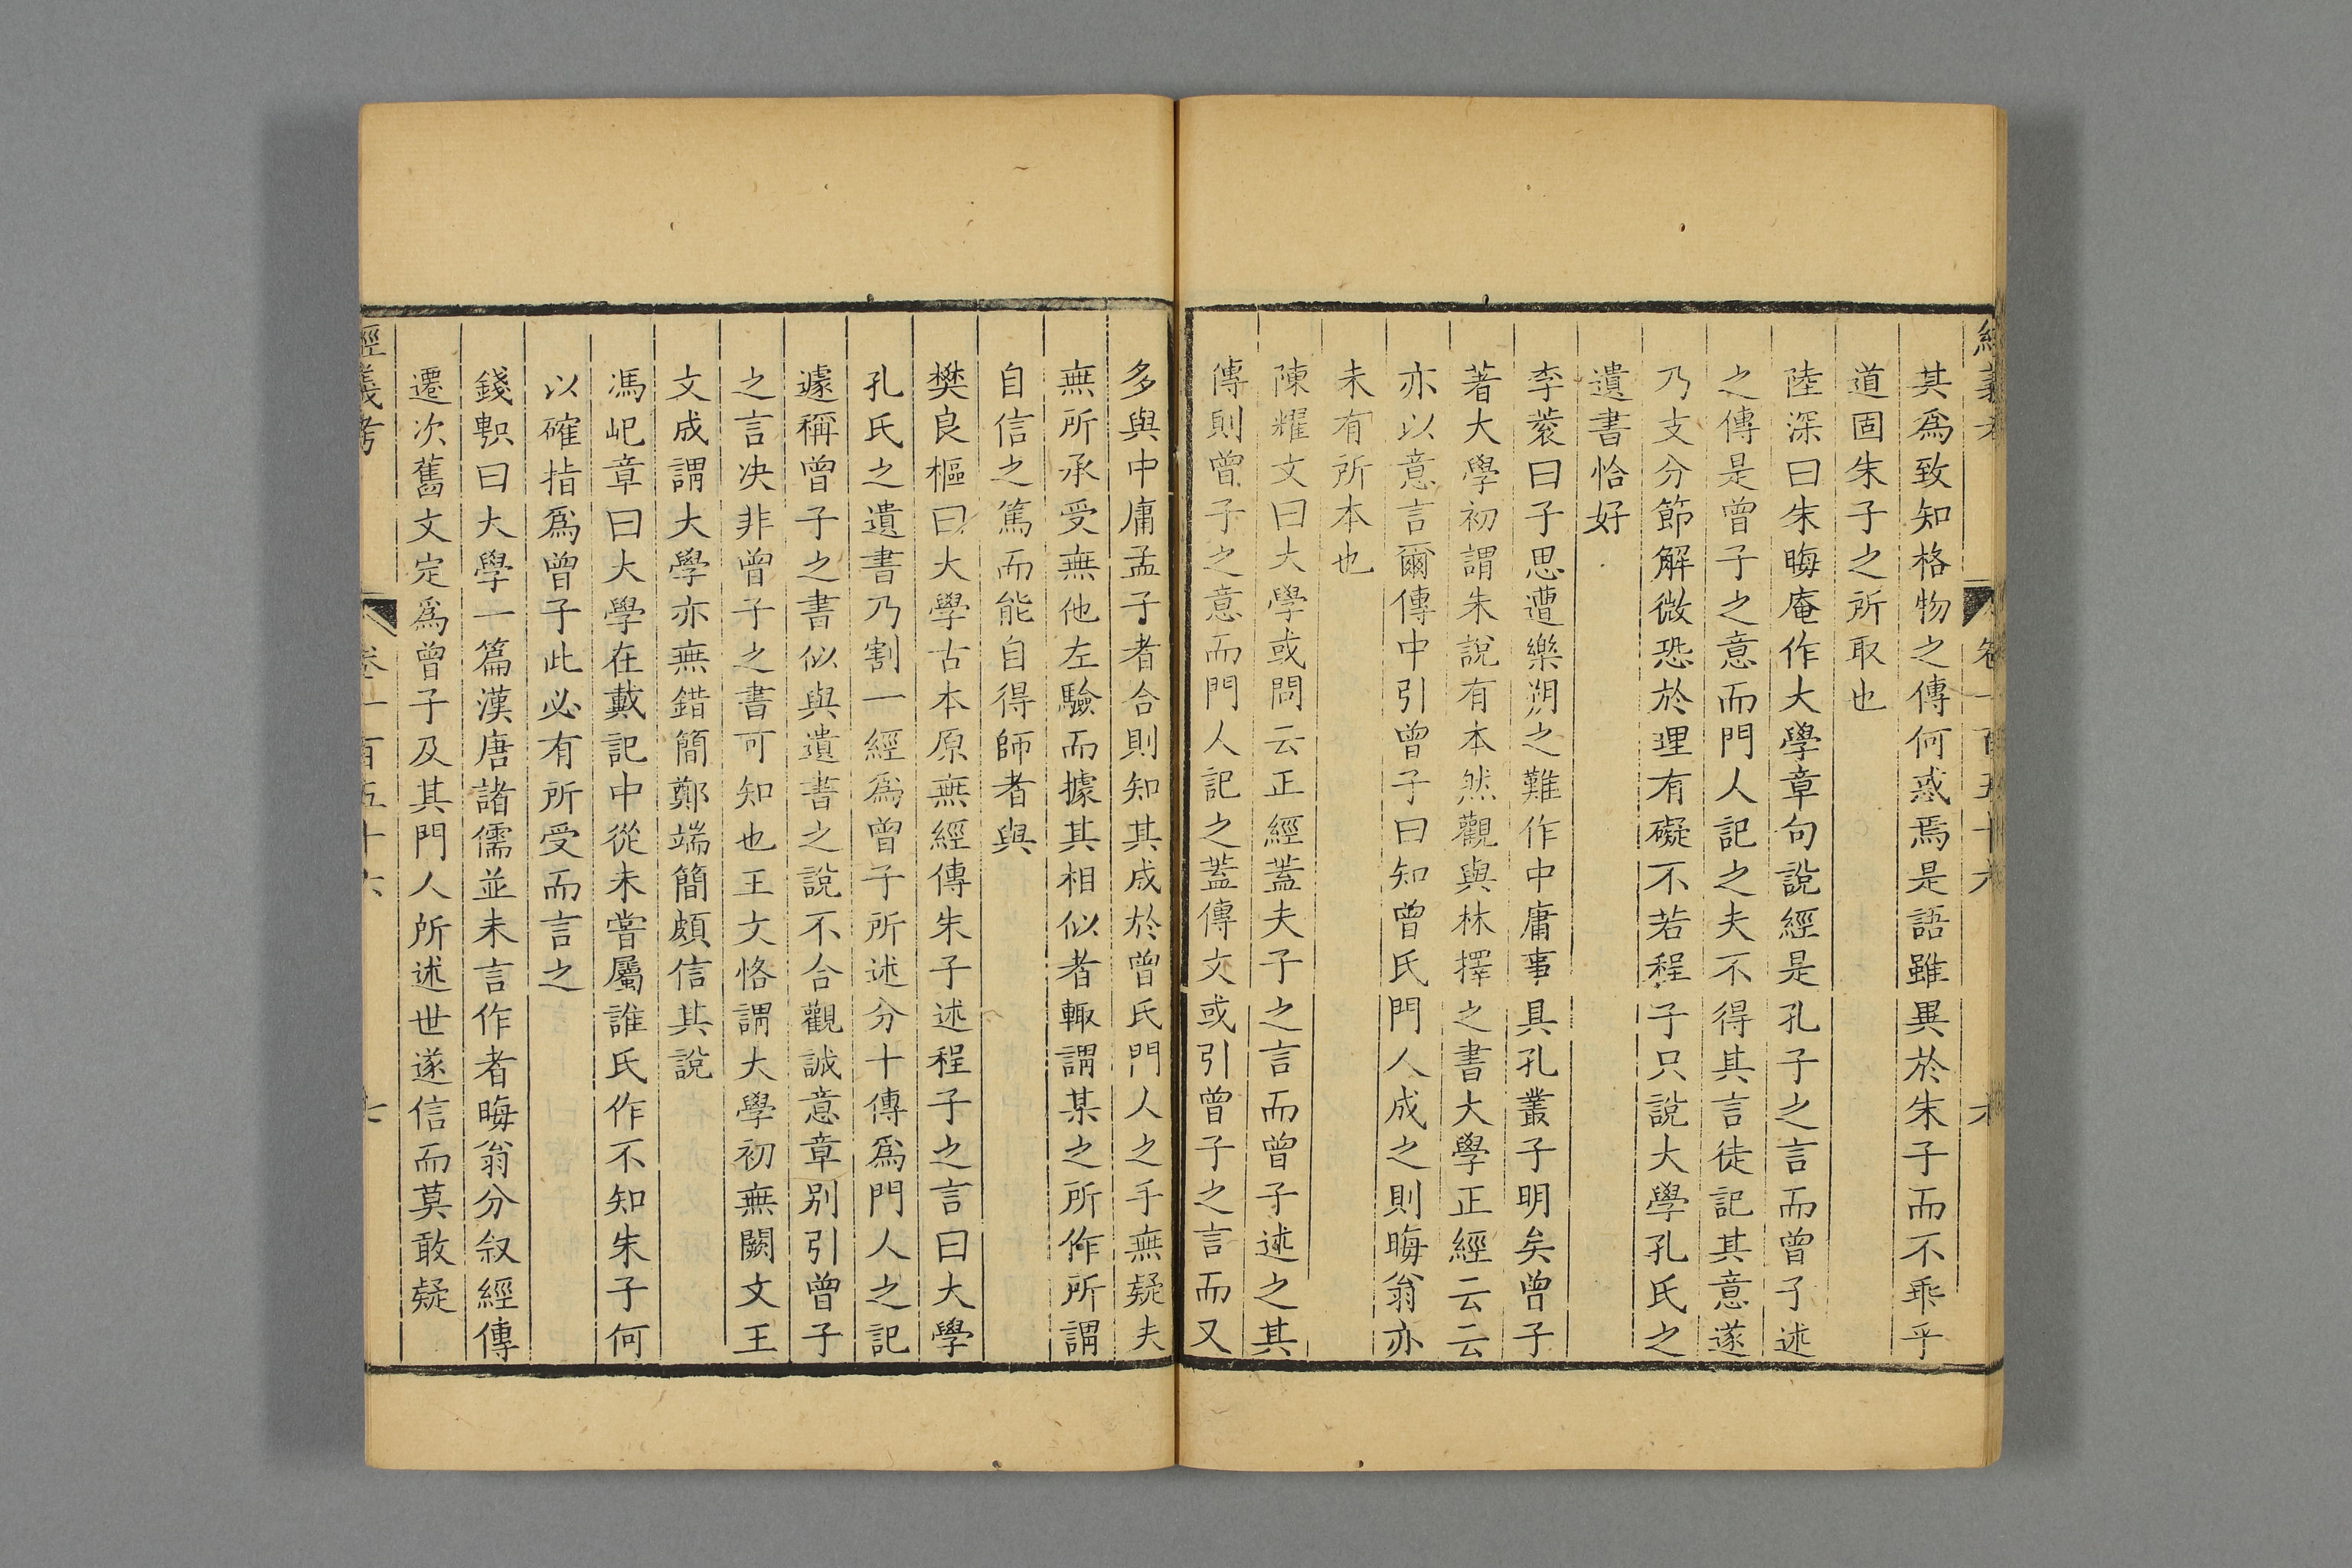 經義考 卷一百五十六
其爲致知格物之傳何惑焉是語雖異於朱子而不乖乎
道固朱子之所取也
陸深曰朱晦庵作大學章句說經是孔子之言而曾子述
之傳是曾子之意而門人記之夫不得其言徒記其意遂
乃支分節解微恐於理有礙不若程子只說大學孔氏之
遺書恰好
李蓘曰子思遭樂朔之難作中庸事具孔叢子明矣曾子
著大學初謂朱說有本然觀與林擇之書大學正經云云
亦以意言爾傳中引曾子曰知曾氏門人成之則晦翁亦
未有所本也
陳耀文曰大學或問云正經蓋夫子之言而曾子述之其
傳則曾子之意而門人記之蓋傳文或引曾子之言而又
多與中庸孟子者合則知其成於曾氏門人之手無疑夫
無所承受無他左驗而據其相似者輙謂某之所作所謂
自信之篤而能自得師者與
樊良樞曰大學古本原無經傳朱子述程子之言曰大學
孔氏之遺書乃割一經爲曾子所述分十傳爲門人之記
遽稱曾子之書似與遺書之說不合觀誠意章别引曾子
之言决非曾子之書可知也王文恪謂大學初無闕文王
文成謂大學亦無錯簡鄭端簡頗信其說
馮屺章曰大學在戴記中從未嘗屬誰氏作不知朱子何
以確指爲曾子此必有所受而言之
錢𣝛曰大學一篇漢唐諸儒並未言作者晦翁分叙經傳
遷次舊文定爲曾子及其門人所述世遂信而莫敢疑
經義考 卷一百五十六 七